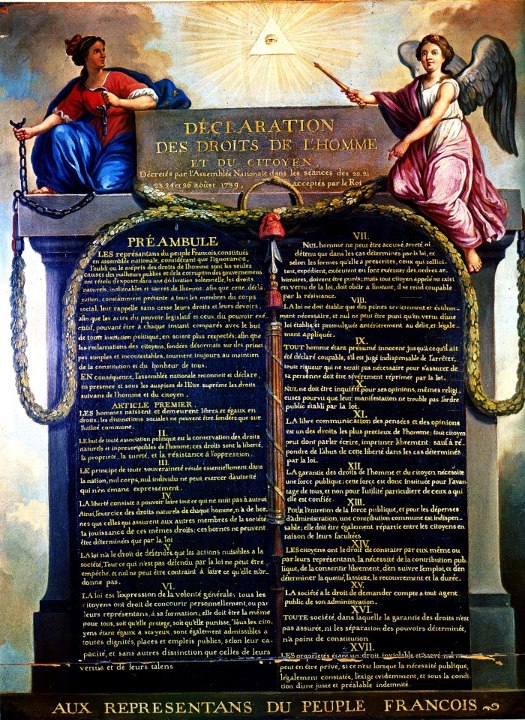 DÉCLARATION
DES DROITS DE L'HOMME
ET DU CITOYEN,
Décretés par l'Assemblée Nationale dans les séances des 20. 21
23. 24 et 26 aoust 1789, acceptés par le Roi
PRÉAMBULE
LES représentans du peuple Francois, constitués
en assemblée nationale, considérant que l'ignorance,
l'oubli ou le mépris des droits de l'homme sont les seules
causes des malheurs publics et de la corruption des gouvernemens,
ont résolu d'exposer dans une déclaration solemnelle, les droits
naturels, inaliénables et sacrés de l'homme; afin que cette décla
ration, constamment présente a tous les membres du corps
social, leur rappelle sans cesse leurs droits et leurs devoirs;
afin que les actes du pouvoir legislatif et ceux du pouvoir exé
cutif, pouvant être a chaque instant comparés avec le but
de toute institution politique, en soient plus respectés; afin que
les reclamations des citoyens, fondées désormais sur des princi
pes simples et incontestables, tournent toujours au maintien
de la constitution et du bonheur de tous.
EN conséquence, l'assemblée nationale reconnoit et déclare,
en presence et sous les auspices de l'Etre suprême les droits
suivans de l'homme et du citoyen.
ARTICLE PREMIER.
LES hommes naissent et demeurent libres et égaux en
droits, les distinctions sociales ne peuvent être fondées que sur
l'utilité commune.
II.
LE but de toute association politique est la conservation des droits
naturels et imprescriptibles de l'homme; ces droits sont la liberté,
la propriété, la sureté, et la résistance à l'oppression.
III.
LE principe de toute souveraineté réside essentiellement dans
la nation, nul corps, nul individu ne peut exercer d'autorité
qui n'en émane expressément.
IV.
LA liberté consiste a pouvoir faire tout ce qui ne nuit pas à autrui
Ainsi, l'exercice des droits naturels de chaque homme, n'a de bor
nes que celles qui assurent aux autres membres de la société
la jouissance de ces mêmes droits; ces bornes ne peuvent
être déterminées que par la loi.
V.
LA loi n'a le droit de défendre que les actions nuisibles a la
société. Tout ce qui n'est pas défendu par la loi ne peut être
empêché, et nul ne peut être contraint à faire ce qu'elle n'or
donne pas.
VI.
LA loi est l'expression de la volonté générale; tous les
citoyens ont droit de concourir personnellement, ou par
leurs représentans, à sa formation; elle doit être la même
pour tous, soit qu'elle protege, soit qu'elle punisse. Tous les cito
yens étans égaux à ses yeux, sont également admissibles a
toutes dignités, places et emplois publics, selon leur ca
pacité, et sans autres distinction que celles de leurs
vertus et de leurs talens
VII.
NUL homme ne peut être accusé, arreté ni
détenu que dans les cas déterminés par la loi, et
selon les formes qu'elle a prescrites, ceux qui sollici
tent, expédient, exécutent ou font exécuter des ordres ar
bitraires, doivent être punis; mais tout citoyen appelé ou saisi
en vertu de la loi, doit obéir a l'instant, il se rend coupable
par la résistance.
VIII.
LA loi ne doit établir que des peines strictement et évidem
ment nécessaire, et nul ne peut être puni qu'en vertu d'une
loi établie et promulguée antérierement au délit, et légale
ment appliquée.
IX.
TOUT homme étant présumé innocent jusqu'a ce qu'il ait
été déclaré coupable, s'il est jugé indispensable de l'arrêter,
toute rigueur qui ne serait pas nécessaire pour s'assurer de
sa personne doit être sévèrement réprimée par la loi.
X.
NUL ne doit être inquiété pour ses opinions, mêmes religi
euses pourvu que leur manifestation ne trouble pas l'ordre
public établi par la loi.
XI.
LA libre communication des pensées et des opinions
est un des droits les plus precieux de l'homme; tout citoyen
peut donc parler écrire, imprimer librement: sauf à ré
pondre de l'abus de cette liberté dans les cas déterminés
par la loi.
XII.
LA garantie des droits de l'homme et du citoyen nécessite
une force publique; cette force est donc instituée pour l'avan
tage de tous, et non pour l'utilité particuliere de ceux a qui
elle est confiée.
XIII.
Pour l'entretien de la force publique, et pour les dépenses
d'administration, une contribution commune est indispen
sable; elle doit être également répartie entre les citoyens en
raison de leurs facultées
XIV.
LES citoyens ont le droit de constater par eux même ou
par leurs représentans, la nécessité de la contribution pub
lique, de la consentir librement, d'en suivre l'emploi, et d'en
déterminer la quotité, l'assiette, le recouvrement et la durée.
XV.
LA société a le droit de demander compte a tout agent
public de son administration.
XVI.
TOUTE société, dans laquelle la garantie des droits n'est
pas assurée, ni la séparation des pouvoirs déterminée,
n'a point de constitution
XVII.
LES propriétés étant un droit inviolable et sacré, nul ne
peut en être privé, si ce n'est lorsque la nécessité publique,
légalement constatée, l'exige evidemment, et sous la condi
tion d'une juste et préalable indemnité
AUX REPRESENTANS DU PEUPLE FRANCOIS